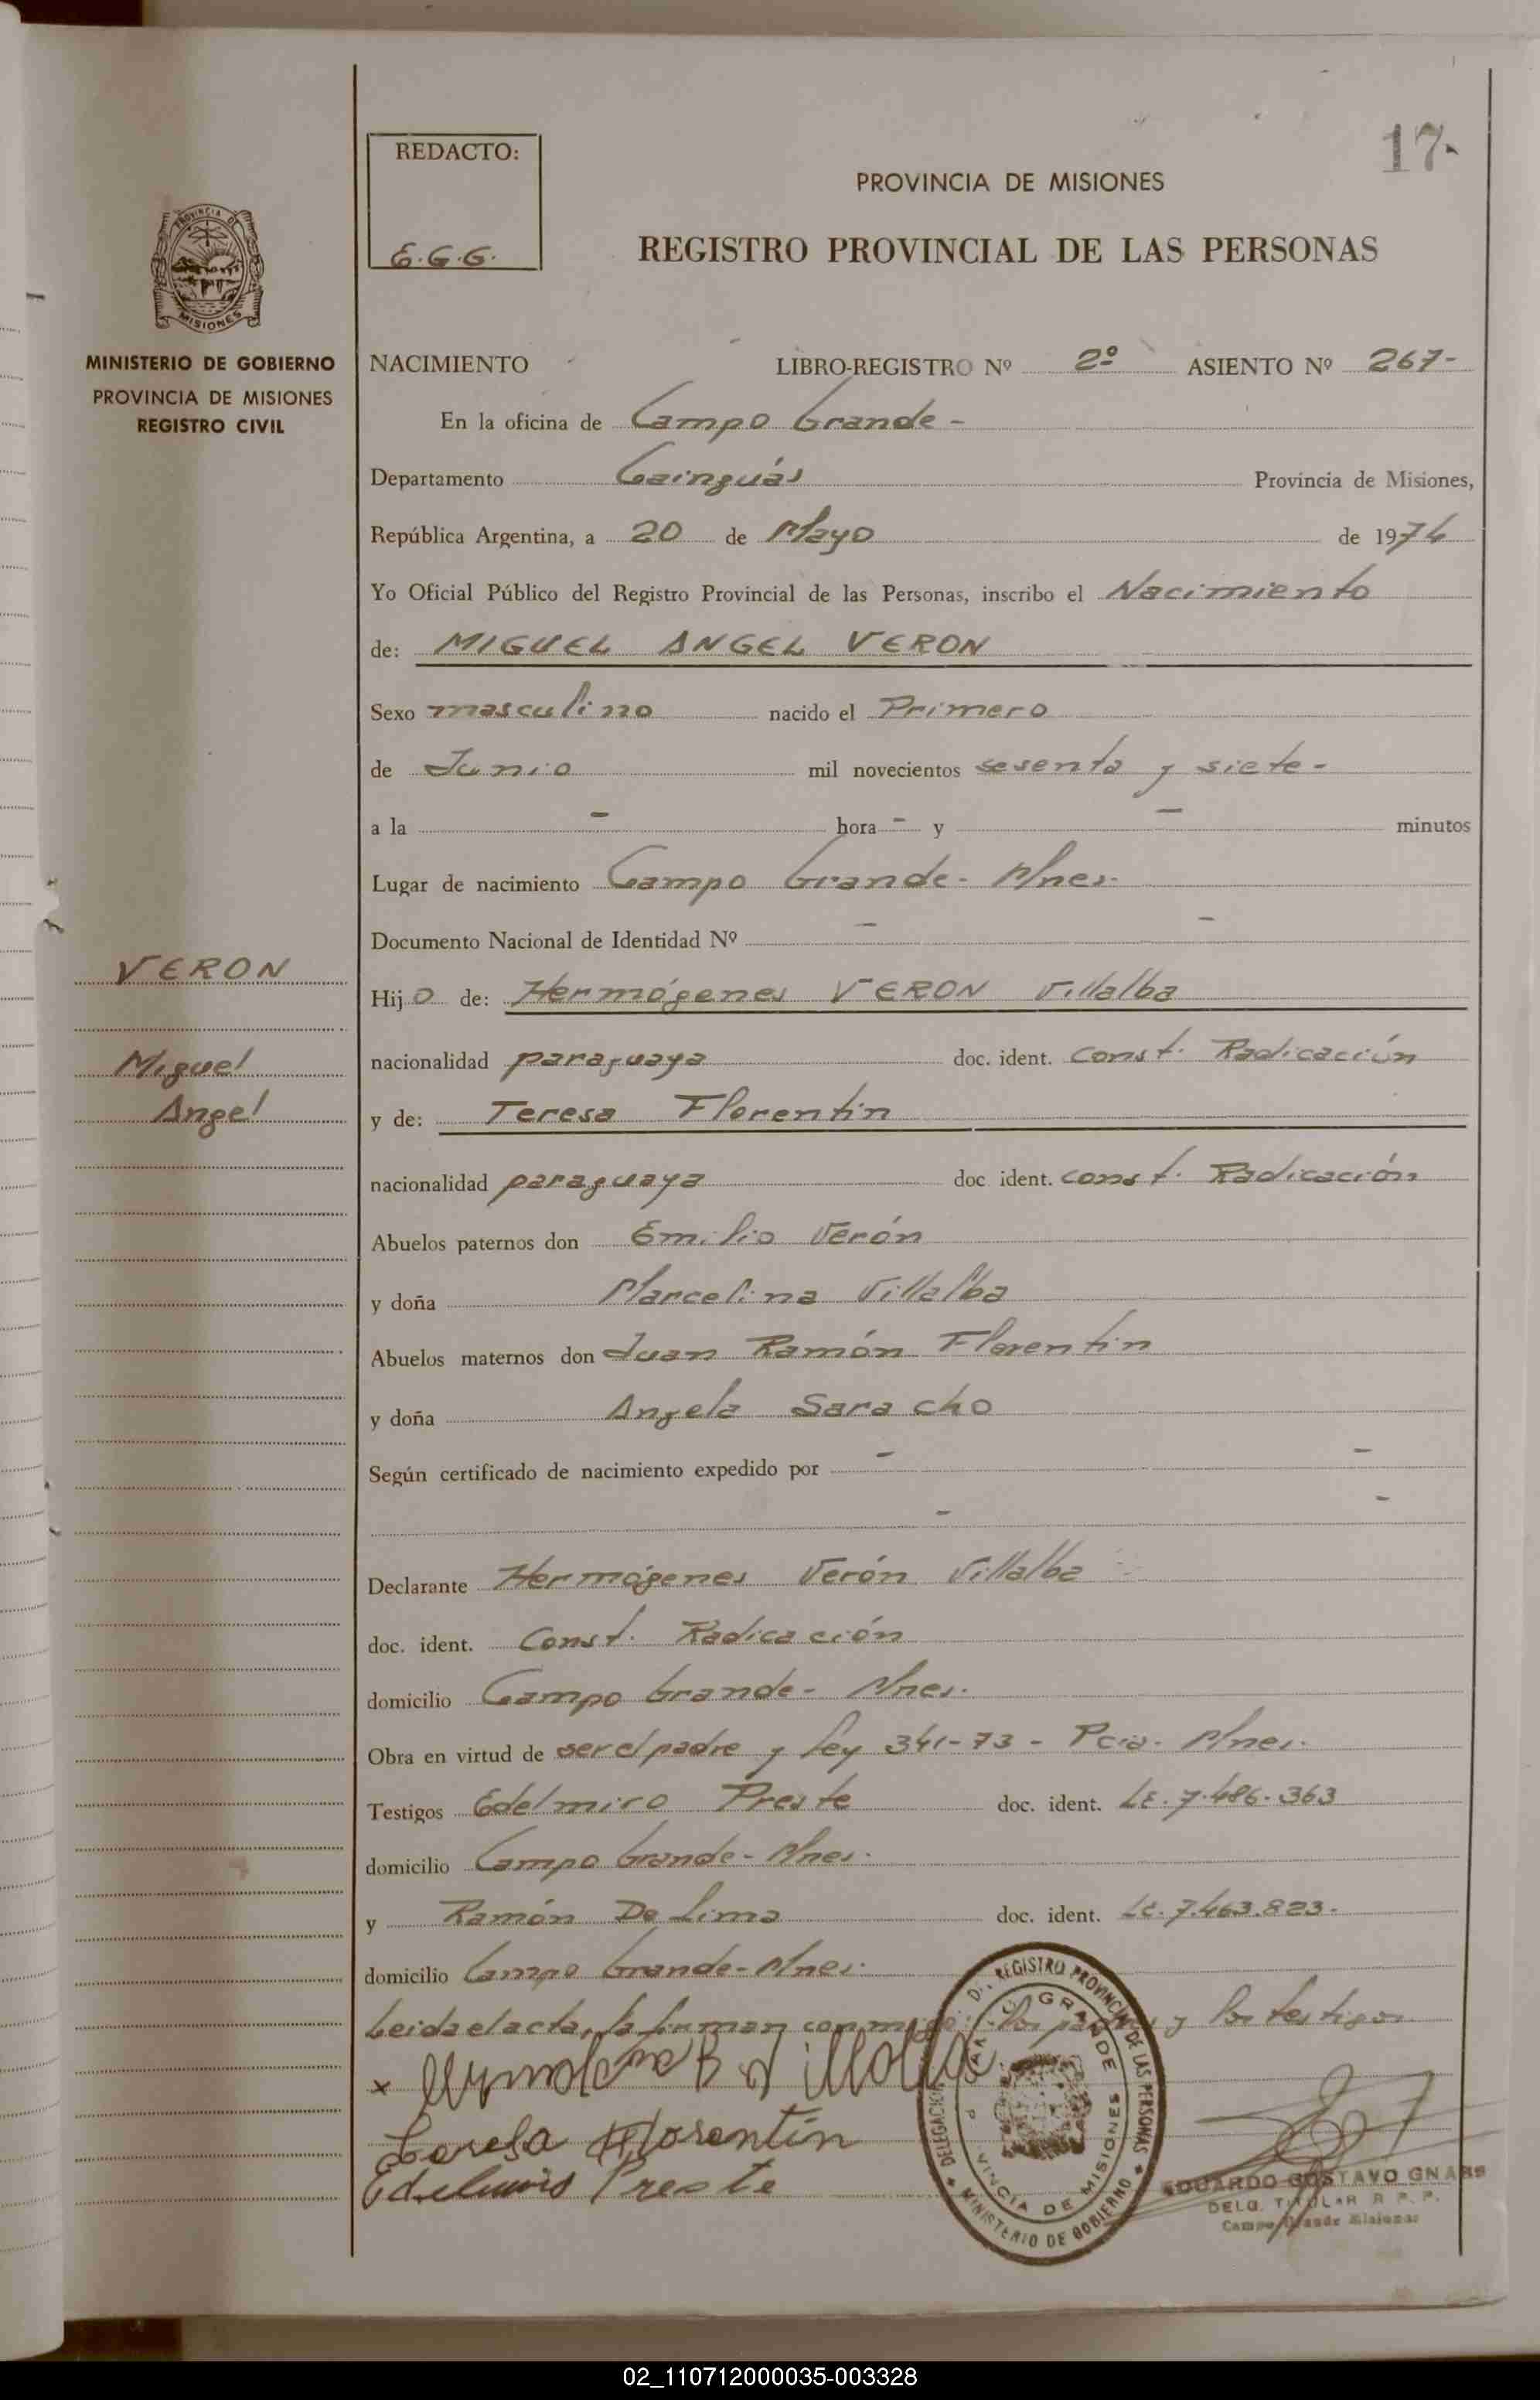 17.
REDACTO:
E.G.G.
PROVINCIA DE MISIONES
REGISTRO PROVINCIAL DE LAS PERSONAS
PROVINCIA DE
MISIONES
MINISTERIO DE GOBIERNO
PROVINCIA DE MISIONES
REGISTRO CIVIL
NACIMIENTO LIBRO-REGISTRO Nº 2º ASIENTO Nº 267-
En la oficina de Campo Grande -
Departamento Cainguás Provincia de Misiones,
República Argentina, a 20 de Mayo de 1974
Yo Oficial Público del Registro Provincial de las Personas, inscribo el Nacimiento
de: MIGUEL ANGEL VERON
Sexo masculino nacido el Primero
de Junio mil novecientos sesenta y siete-
a la - hora - y - minutos
Lugar de nacimiento Campo Grande- Mnes.
Documento Nacional de Identidad Nº - -
VERON
Miguel
Angel
Hijo de: Hermógenes VERON Villalba
nacionalidad paraguaya doc. ident. Const. Radicación
y de: Teresa Florentín
nacionalidad paraguaya doc ident. const. Radicación
Abuelos paternos don Emilio Verón
y doña Marcelina Villalba
Abuelos maternos don Juan Ramón Florentín
y doña Angela Saracho
Según certificado de nacimiento expedido por - -
- -
Declarante Hermógenes Verón Villalba
doc. ident. Const. Radicación
domicilio Campo Grande- Mnes.
Obra en virtud de ser el padre y Ley 341-73 - Pcia. Mnes.
Testigos Edelmiro Preste doc. ident. LE. 7.486.363
domicilio Campo Grande- Mnes.
y Ramón De Lima doc. ident. LE. 7.463.823.
domicilio Campo Grande- Mnes.
Leida el acta, la firman conmigo: los padres y los testigos
x Villalba
Teresa Florentín
Edelmiro Preste
DELEGACION D. REGISTRO PROVINCIAL DE LAS PERSONAS
MINISTERIO DE GOBIERNO
CAMPO GRANDE
PROVINCIA DE MISIONES
EDUARDO GUSTAVO GNASS
DELG. TITULAR R. P. P.
Campo Grande Misiones
02_110712000035-003328